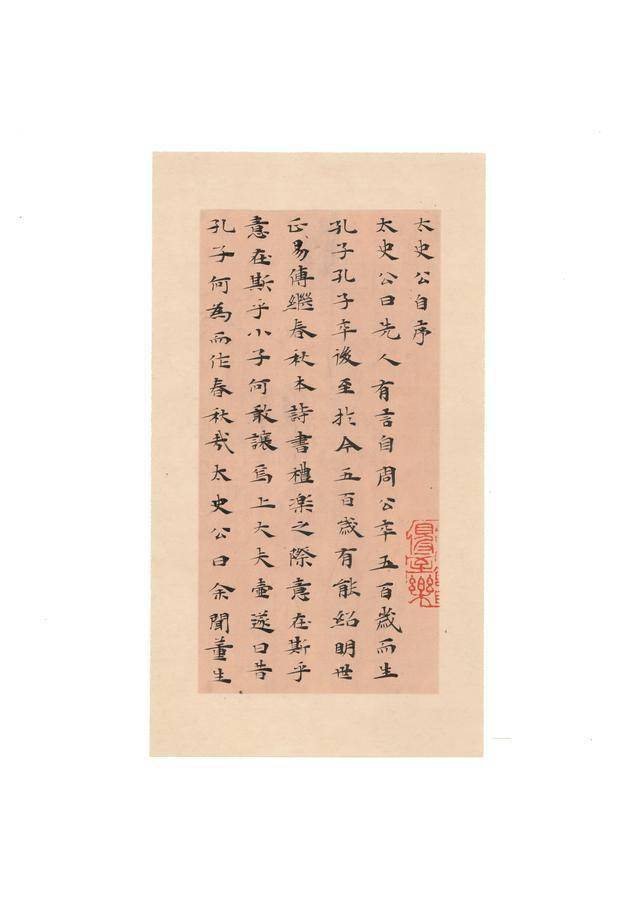 太史公自序
太史公曰先人有言自周公卒五百歲而生
孔子孔子卒後至於今五百歲有能紹明世
正易傳繼春秋本詩書禮樂之際意在斯乎
意在斯乎小子何敢讓焉上大夫壺遂曰昔
孔子何為而作春秋哉太史公曰余聞董生